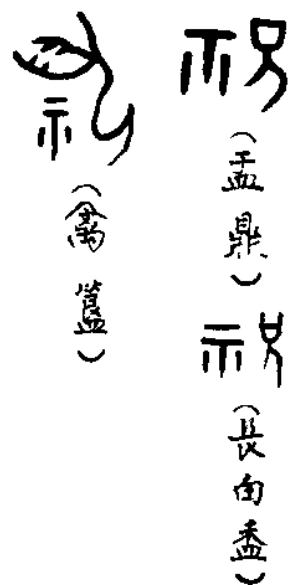 祝
(盂鼎)
祝
(長甶盉)
祝
(禽簋)